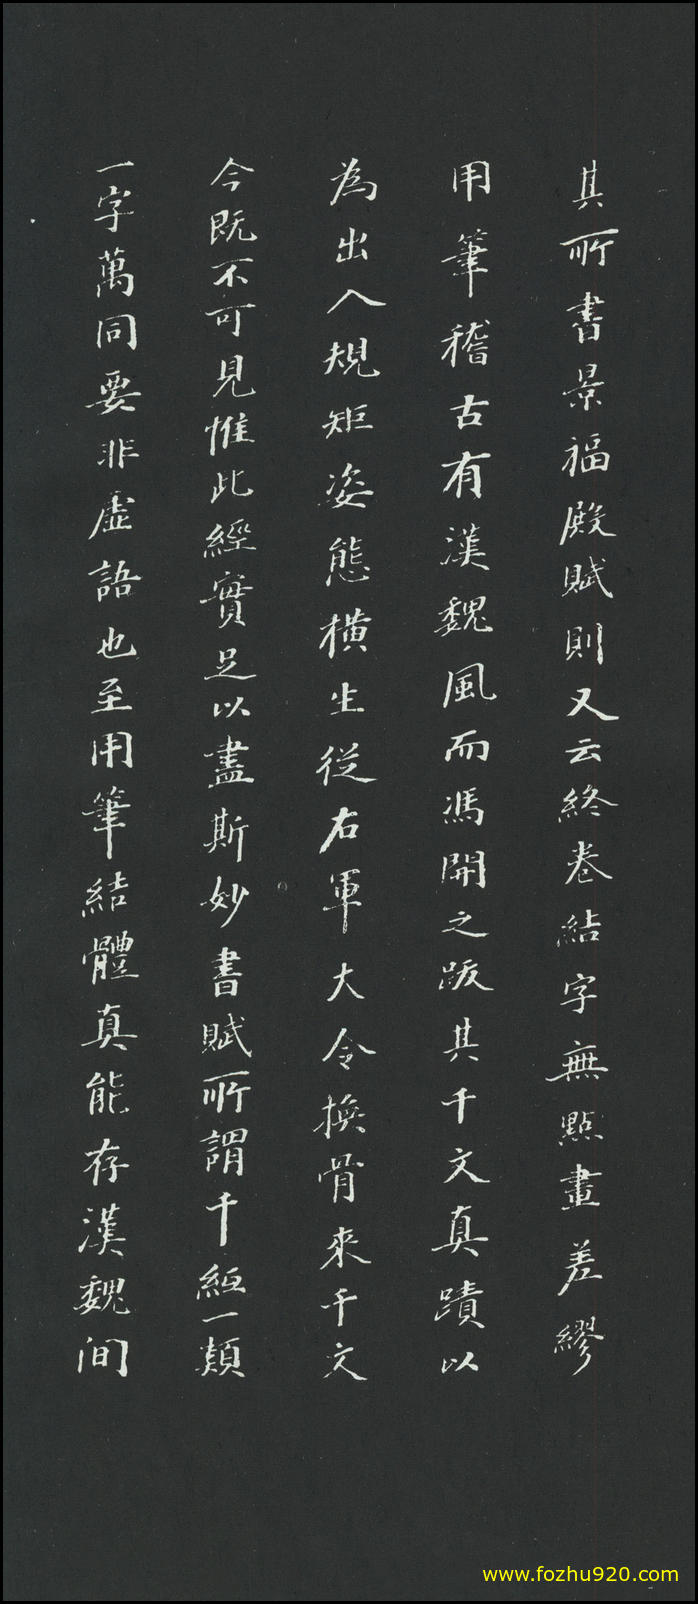 其所書景福殿賦則又云終卷結字無點畫差繆
用筆稽古有漢魏風而馮開之跋其千文真蹟以
為出入規矩姿態橫生從右軍大令換骨來千文
今既不可見惟此經實足以盡斯妙書賦所謂千紙一類
一字萬同要非虛語也至用筆結體真能存漢魏間
www.fozhu920.com